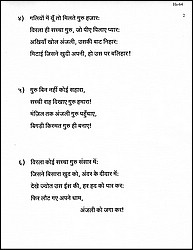 2
४) गलियों में यूँ तो मिलते गुरु हजार:
विरला ही सच्चा गुरु, जो पीए पिलाए प्यार:
अखियाँ खोल अंजली, उसकी बाट निहार:
मिटाई जिसने खुदी अपनी, हो उस पर बलिहार!
५) गुरु बिन नहीं कोई सहारा,
सच्ची राह दिखाए गुरु हमारा!
मंज़िल तक अंजली गुरु पहुँचाए,
बिगड़ी किस्मत गुरु ही बनाए!
६) विरला कोई सच्चा गुरु संसार में:
जिसने बिसारा खुद को, अंदर के दीदार में:
देखे ज्योत उस ईश की, हर हद को पार कर:
फिर लौट गए अपने धाम,
अंजली को जगा कर!